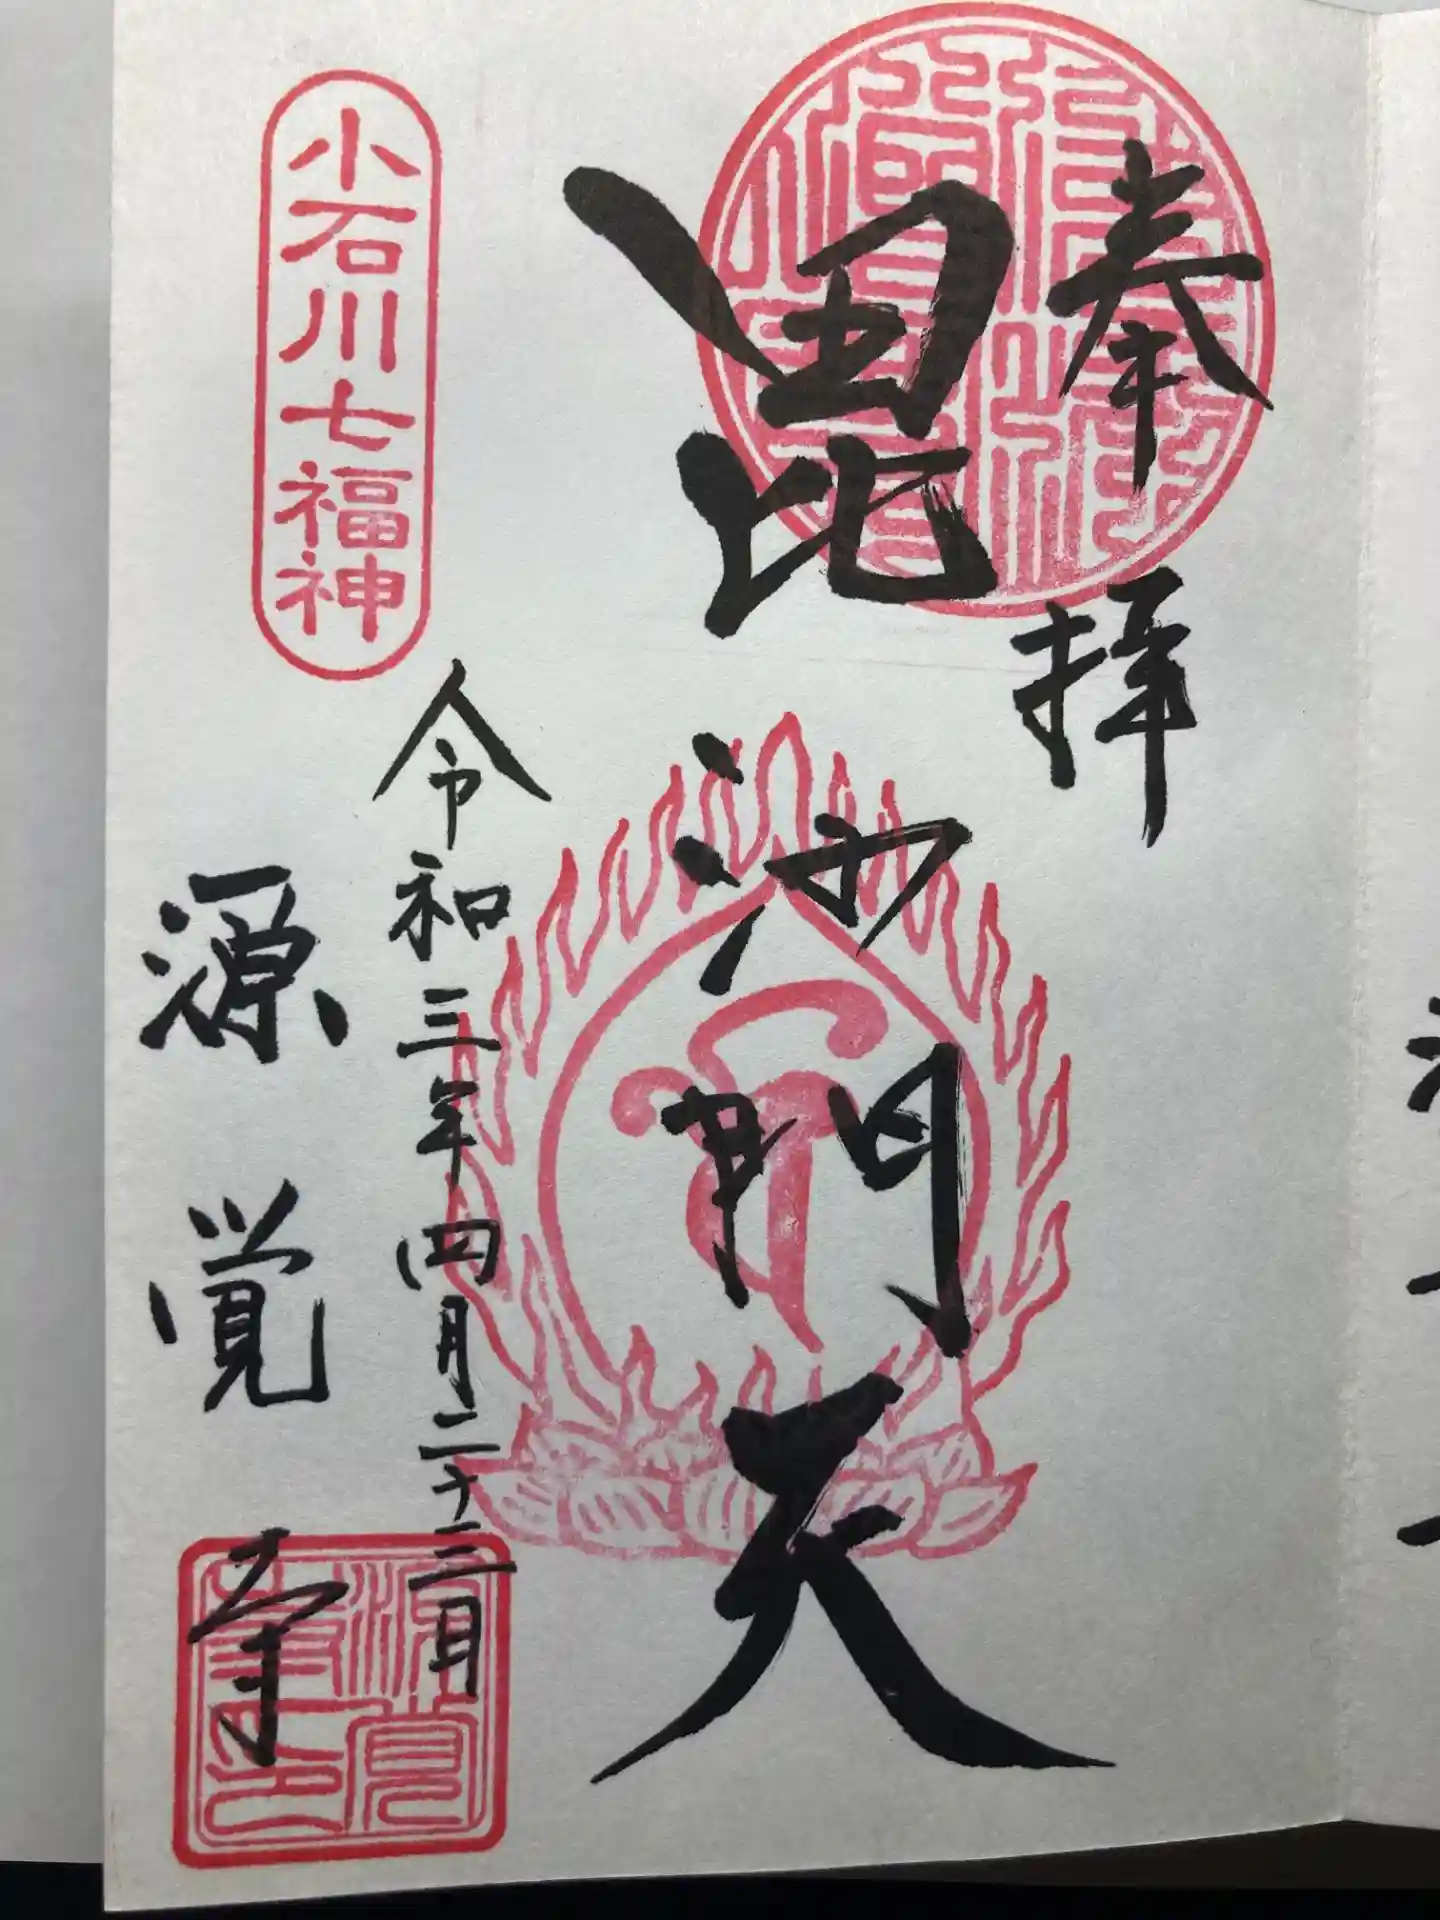 奉拝
毘沙門天
令和三年四月二十三日
小石川七福神
源覚寺
源覚寺印